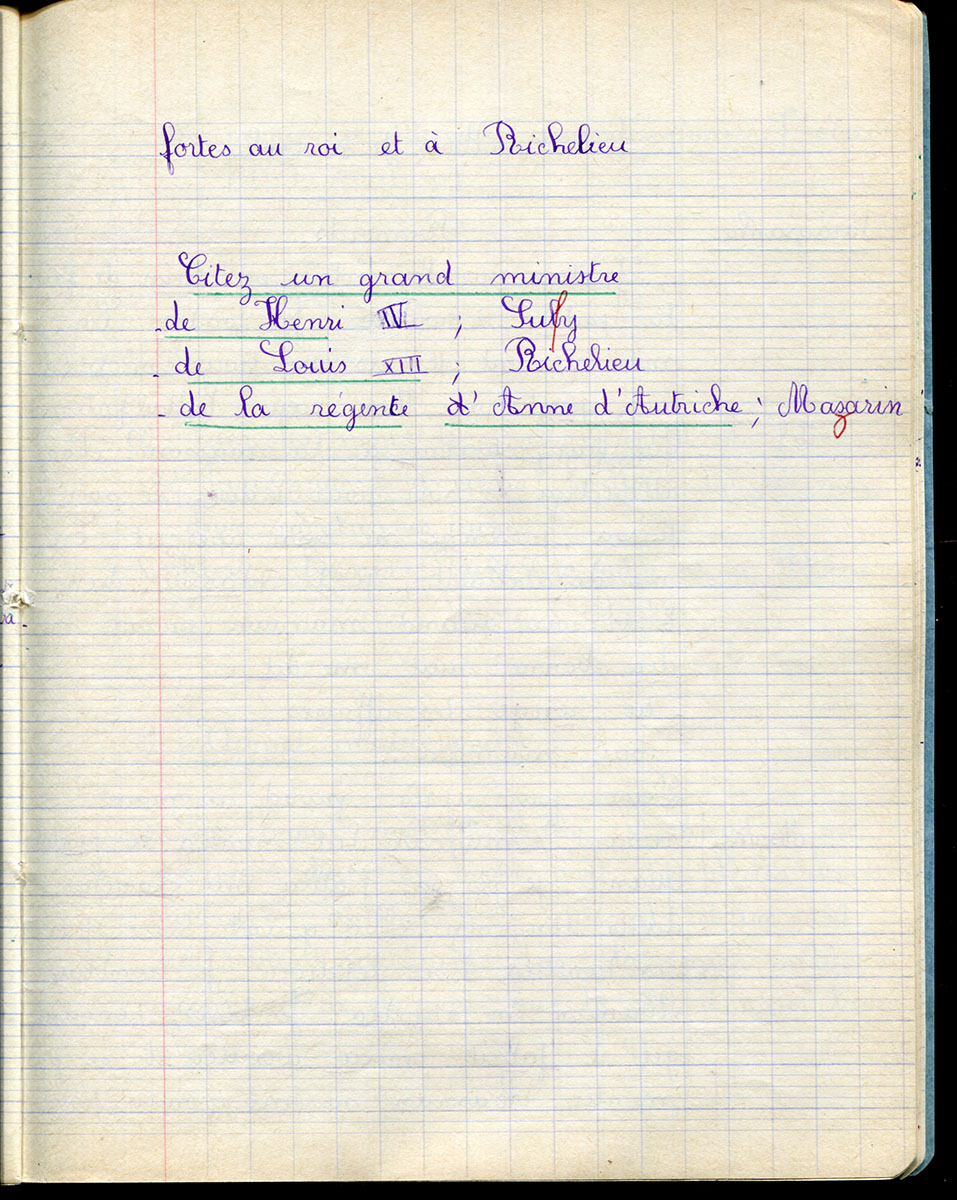 fortes au roi et à Richelieu
Citez un grand ministre
- de Henri IV ; Sully
- de Louis XIII ; Richelieu
- de la régente d'Anne d'Autriche ; Mazarin